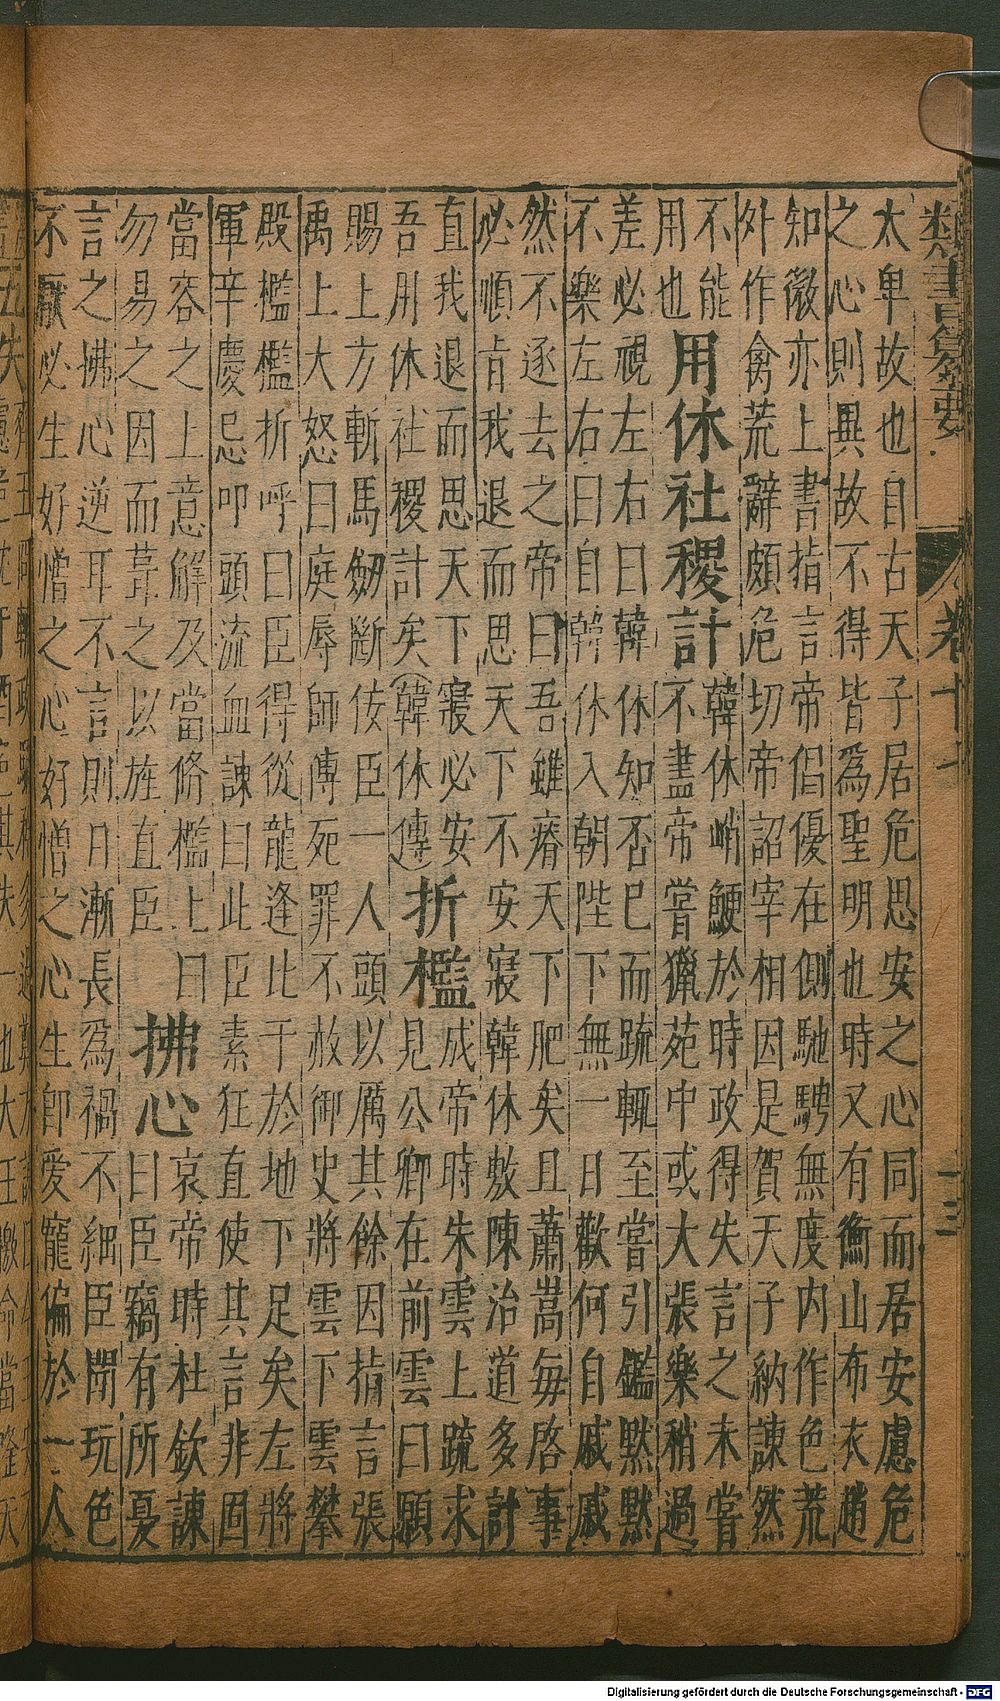 太卑故也自古天子居危思安之心同而居安慮危
之心則異故不得皆爲聖明也時又有衡山布衣趙
知微亦上書指言帝倡優在側馳騁無度內作色荒
外作禽荒辭頗危切帝詔宰相因是賀天子納諫然
不能
用也
用休社稷計
韓休峭鯁於時政得失言之未嘗
不盡帝嘗獵苑中或大張樂稍過
差必視左右曰韓休知否已而疏輒至嘗引鑑默
不樂左右曰自韓休入朝陛下無一日歡何自戚戚
然不逐去之帝曰吾雖瘠天下肥矣且蕭嵩每啓事
必順肯我退而思天下不安寢韓休敷陳治道多計
直我退而思天下寢必安
吾用休社稷計矣(韓休傳)
折檻
成帝時朱雲上疏求
見公卿在前雲曰願
賜上方斬馬劒斷佞臣一人頭以厲其餘因指言張
禹上大怒曰庭辱師傅死罪不赦御史將雲下雲攀
殿檻檻折呼曰臣得從龍逢比干於地下足矣左將
軍辛慶忌叩頭流血諫曰此臣素狂直使其言非固
當容之上意解及當脩檻上曰
勿易之因而葺之以旌直臣
拂心
哀帝時杜欽諫
曰臣竊有所憂
言之拂心逆耳不言則日漸長爲禍不細臣閒玩色
不厭必生好憎之心好憎之心生卽愛寵偏於一人
類書纂要
卷十七
十三